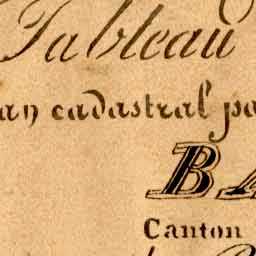 Tableau
an cadastral pa
BA
Canton